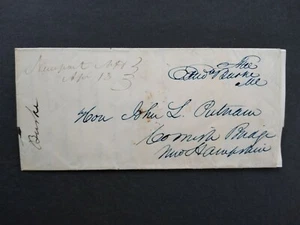 Newport N.H.
Ap 13
Free
Edmd Burke
M.C.
Burke
Hon John L. Putnam
Cornish Bridge
New Hampshire